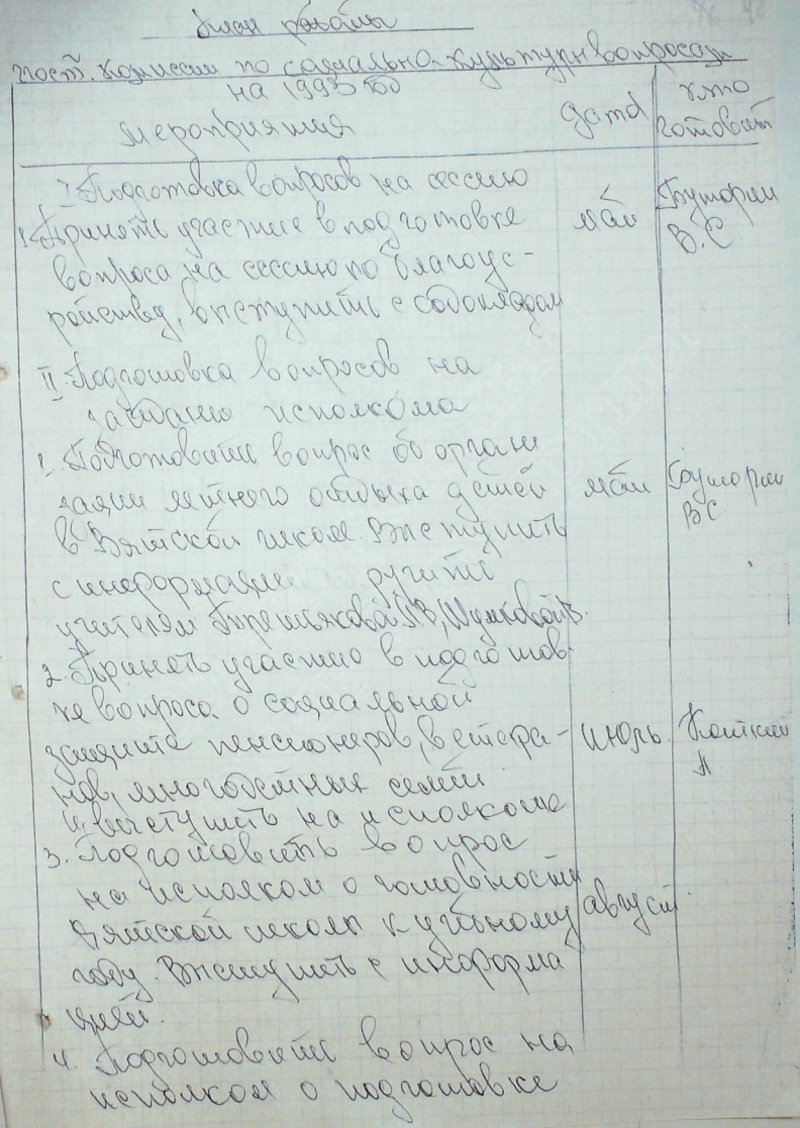 План работы
пост. комиссии по социально-культурн вопросам
на 1993 год
мероприятия
дата
кто
готовит
I Подготовка вопросов на сессию
1. Принять участие в подготовке
вопроса на сессию по благоус-
ройству, выступить с содокладом
май
Буторин
В.С
II. Подготовка вопросов на
заседание исполкома
1. Подготовить вопрос об органи
зации летнего отдыха детей
в Вятской школе. Выступить
с информацией
учителям
май
Буторин
ВС
2. Принять участие в подготов-
ке вопроса о социальной
защите пенсионеров, ветера-
нов, многодетных семей
и выступить на исполкоме
июль.
3. Подготовить вопрос
на исполком о готовности
Вятской школы к учебному
году. Выступить с информа
цией.
август.
4. Подготовить вопрос на
исполком о подготовке